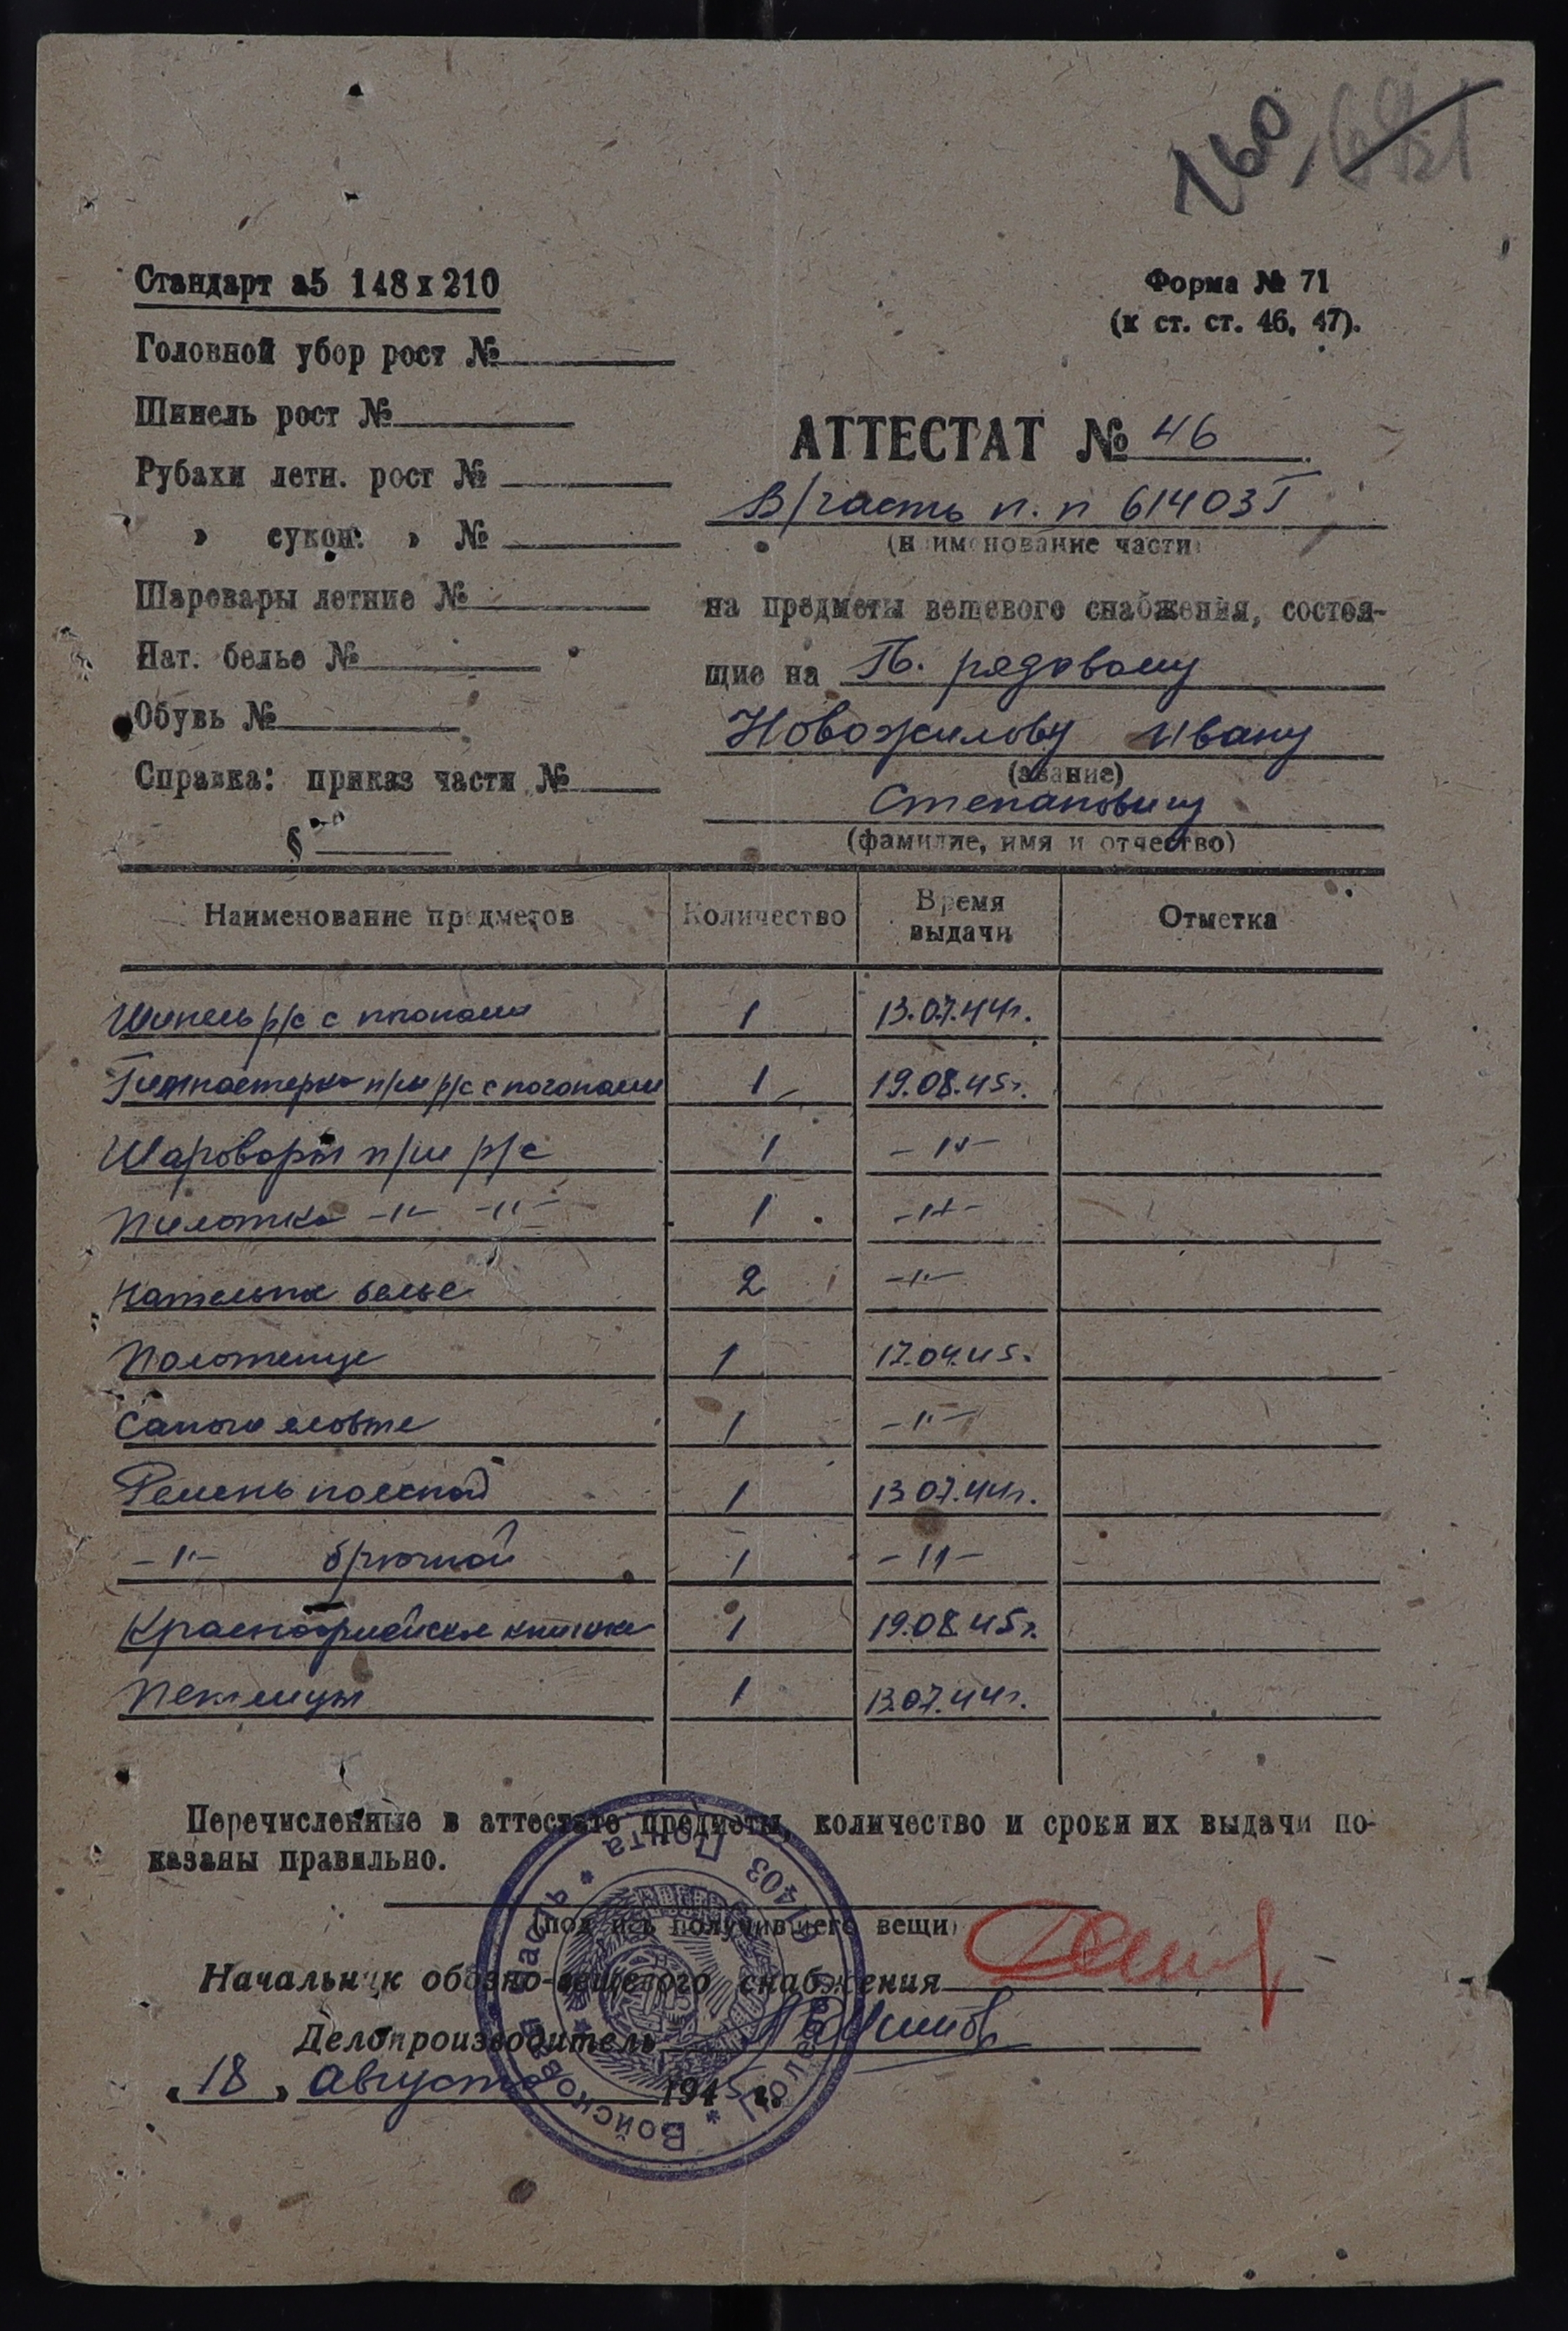 160
Стандарт а5 148 х 210
Форма № 71
(к ст. ст. 46, 47).
Головной убор рост №
Шинель рост №
Рубахи летн. рост №
» сукон. » №
Шаровары летние №
Нат. белье №
Обувь №
Справка: приказ части №
§
АТТЕСТАТ № 46
В/часть п. п 61403 Г
(наименование части)
на предметы вещевого снабжения, состоя-
щие на Гв. рядовому
Новожилову Ивану
(звание)
Степановичу
(фамилие, имя и отчество)
Наименование предметов Количество Время выдачи Отметка
Шинель р/с с погонами 1 13.07.44г.
Гимнастерка п/ш р/с с погонами 1 19.08.45г.
Шаровары п/ш р/с 1 -"-
Пилотка -"- -"- 1 -"-
Нательное белье 2 -"-
Полотенце 1 17.04.45.
Сапоги яловые 1 -"-
Ремень поясной 1 13.07.44г.
-"- брючной 1 -"-
Красноармейская книжка 1 19.08.45г.
Петлицы 1 13.07.44г.
Перечисленные в аттестате предметы, количество и сроки их выдачи по-
казаны правильно.
(подпись получившего вещи)
Начальник обозно-вещевого снабжения
Делопроизводитель
„18" августа 1945 г.
Войсковая часть * Полевая Почта 61403 *